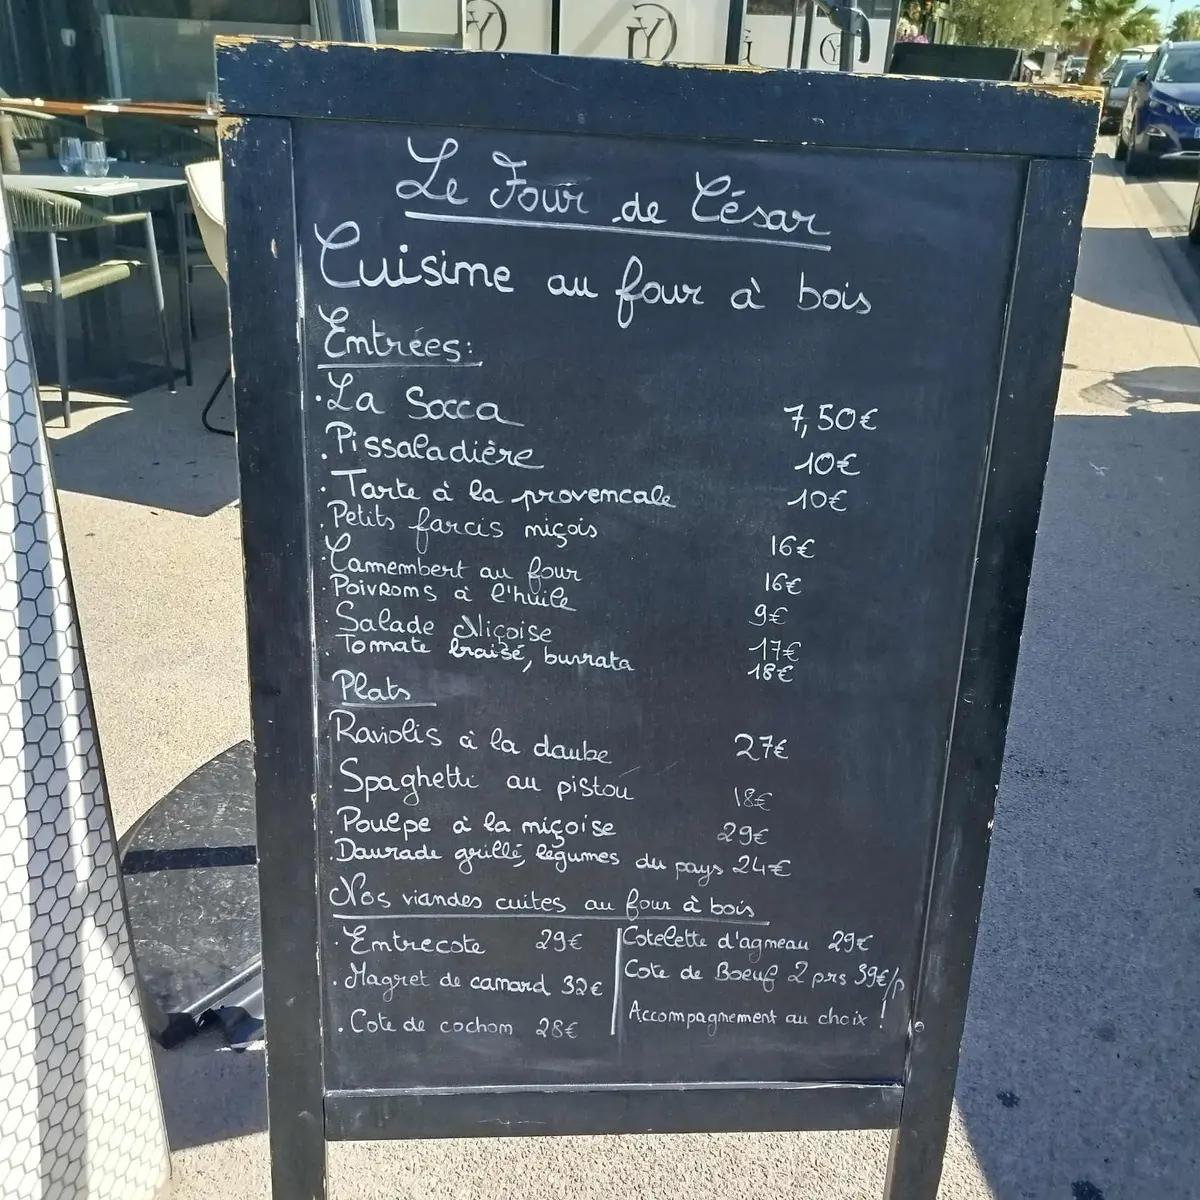 Le Four de César
Cuisine au four à bois
Entrées:
. La Socca 7,50€
. Pissaladière 10€
. Tarte à la provencale 10€
. Petits farcis niçois 16€
. Camembert au four 16€
. Poivrons à l'huile 9€
. Salade Niçoise 17€
. Tomate braisé, burrata 18€
Plats
. Raviolis à la daube 27€
. Spaghetti au pistou 18€
. Poulpe à la niçoise 29€
. Daurade grillé, légumes du pays 24€
Nos viandes cuites au four à bois
. Entrecote 29€
. Magret de canard 32€
. Cote de cochon 28€
Cotelette d'agneau 29€
Cote de Boeuf 2 prs 39€/p
Accompagnement au choix !